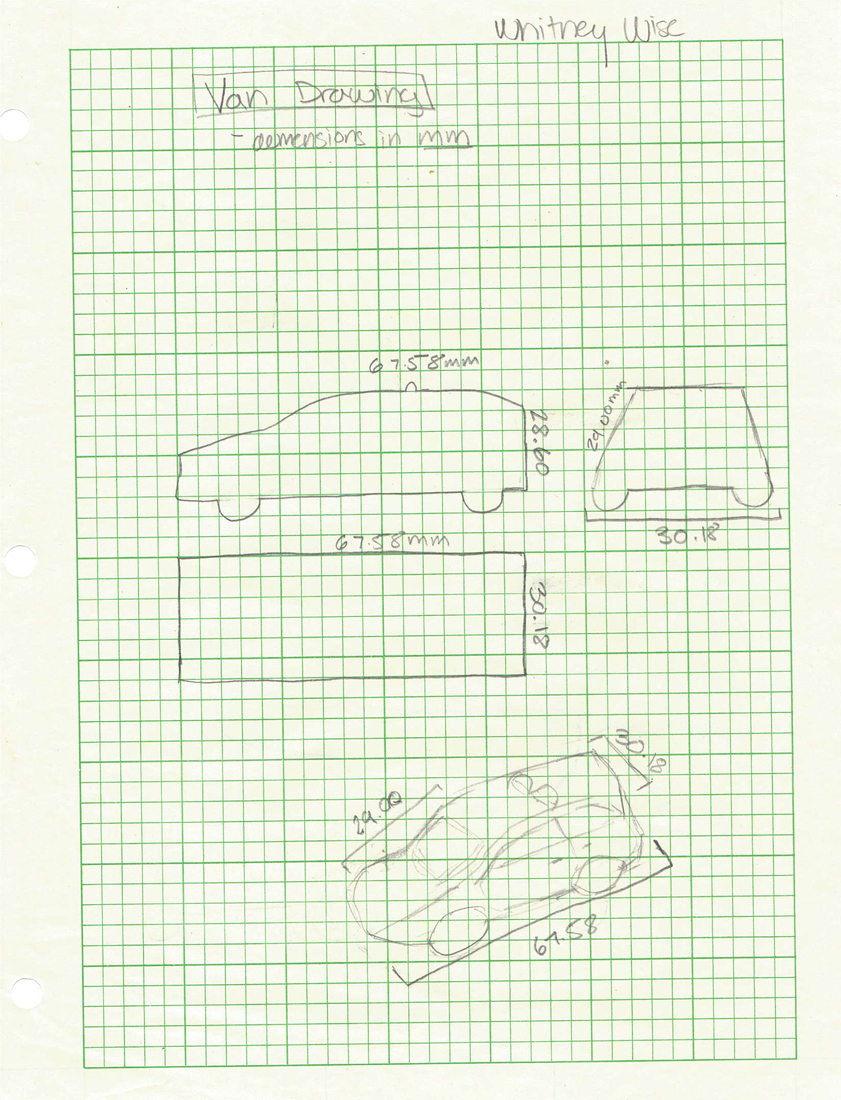 Whitney Wise
Van Drawing
- demensions in mm
67.58mm
28.60
29.00mm
30.18
67.58mm
30.18
30.18
29.00
67.58